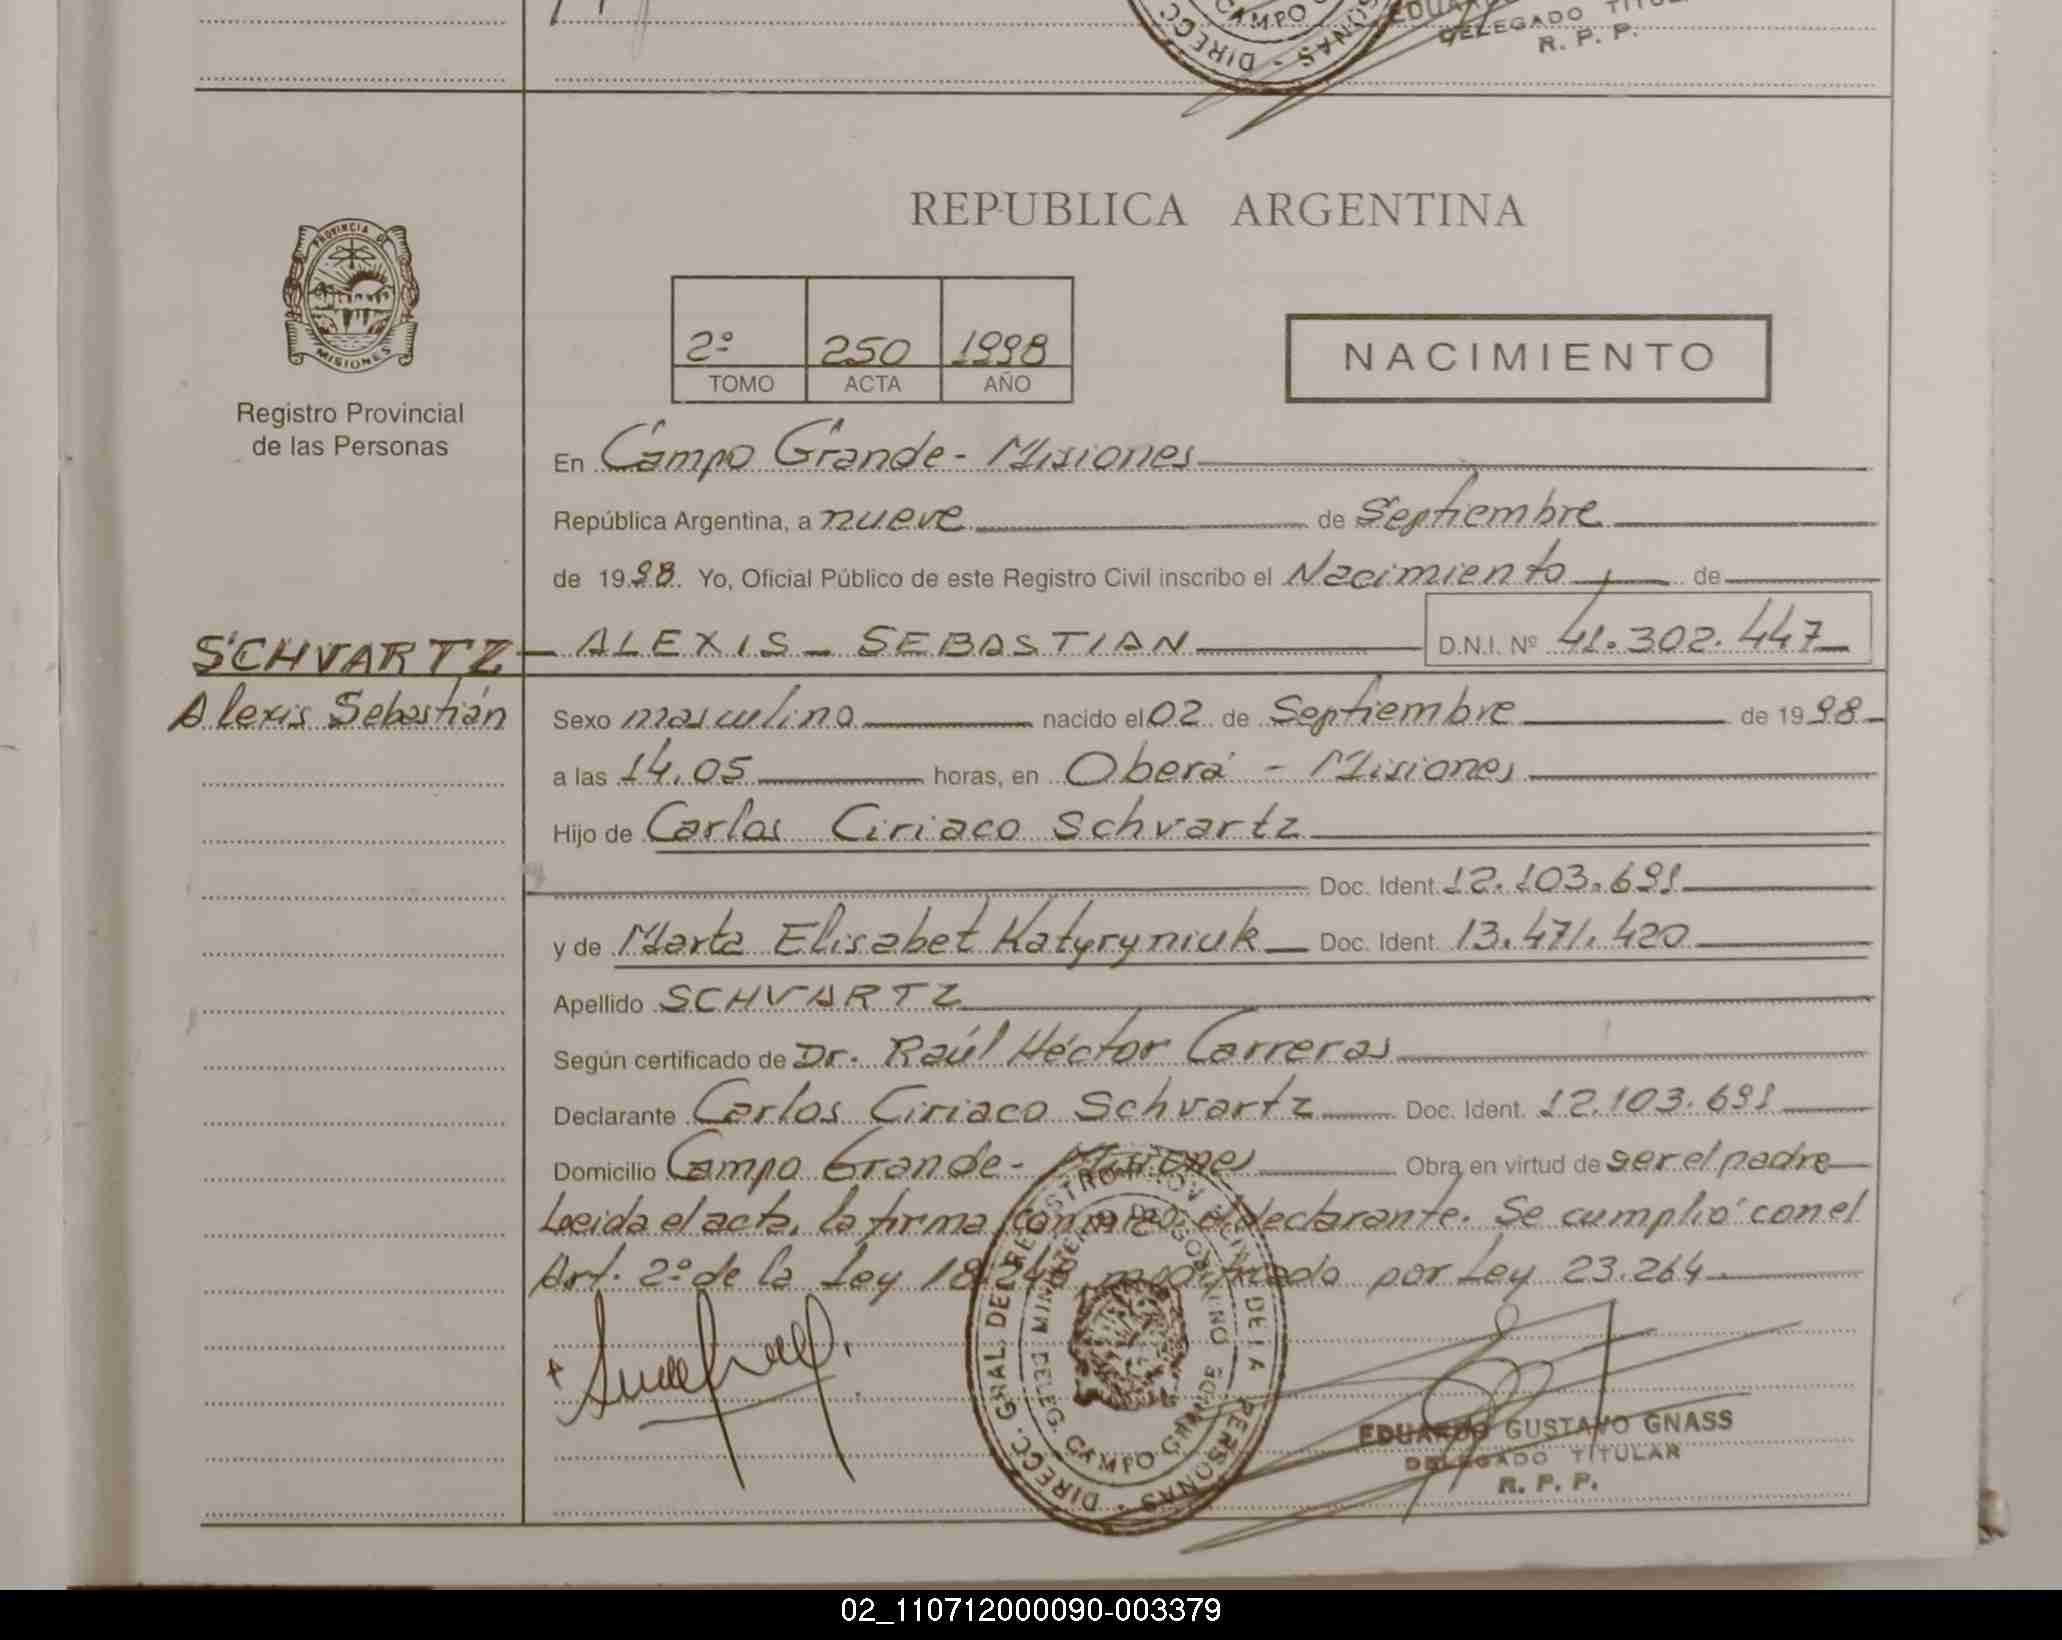 DELEGADO TITULAR
R. P. P.
REPUBLICA ARGENTINA
PROVINCIA DE
MISIONES
2º 250 1998
TOMO ACTA AÑO
NACIMIENTO
Registro Provincial
de las Personas
En Campo Grande - Misiones
República Argentina, a nueve de Septiembre
de 1998. Yo, Oficial Público de este Registro Civil inscribo el Nacimiento de
SCHVARTZ - ALEXIS - SEBASTIAN D.N.I. Nº 41.302.447
Alexis Sebastián
Sexo masculino nacido el 02 de Septiembre de 1998
a las 14.05 horas, en Oberá - Misiones
Hijo de Carlos Ciriaco Schvartz
Doc. Ident. 12.103.691
y de Marta Elisabet Katyryniuk Doc. Ident. 13.471.420
Apellido SCHVARTZ
Según certificado de Dr. Raúl Héctor Carreras
Declarante Carlos Ciriaco Schvartz Doc. Ident. 12.103.691
Domicilio Campo Grande - Misiones Obra en virtud de ser el padre
Leida el acta, la firma conmigo el declarante. Se cumplió con el
Art. 2º de la Ley 18.248 modificado por Ley 23.264
DIRECC. GRAL. DEL REGISTRO PROVINCIAL DE LA PERSONAS
MINISTERIO DE GOBIERNO
DELEG. CAMPO GRANDE
EDUARDO GUSTAVO GNASS
DELEGADO TITULAR
R. P. P.
02_110712000090-003379